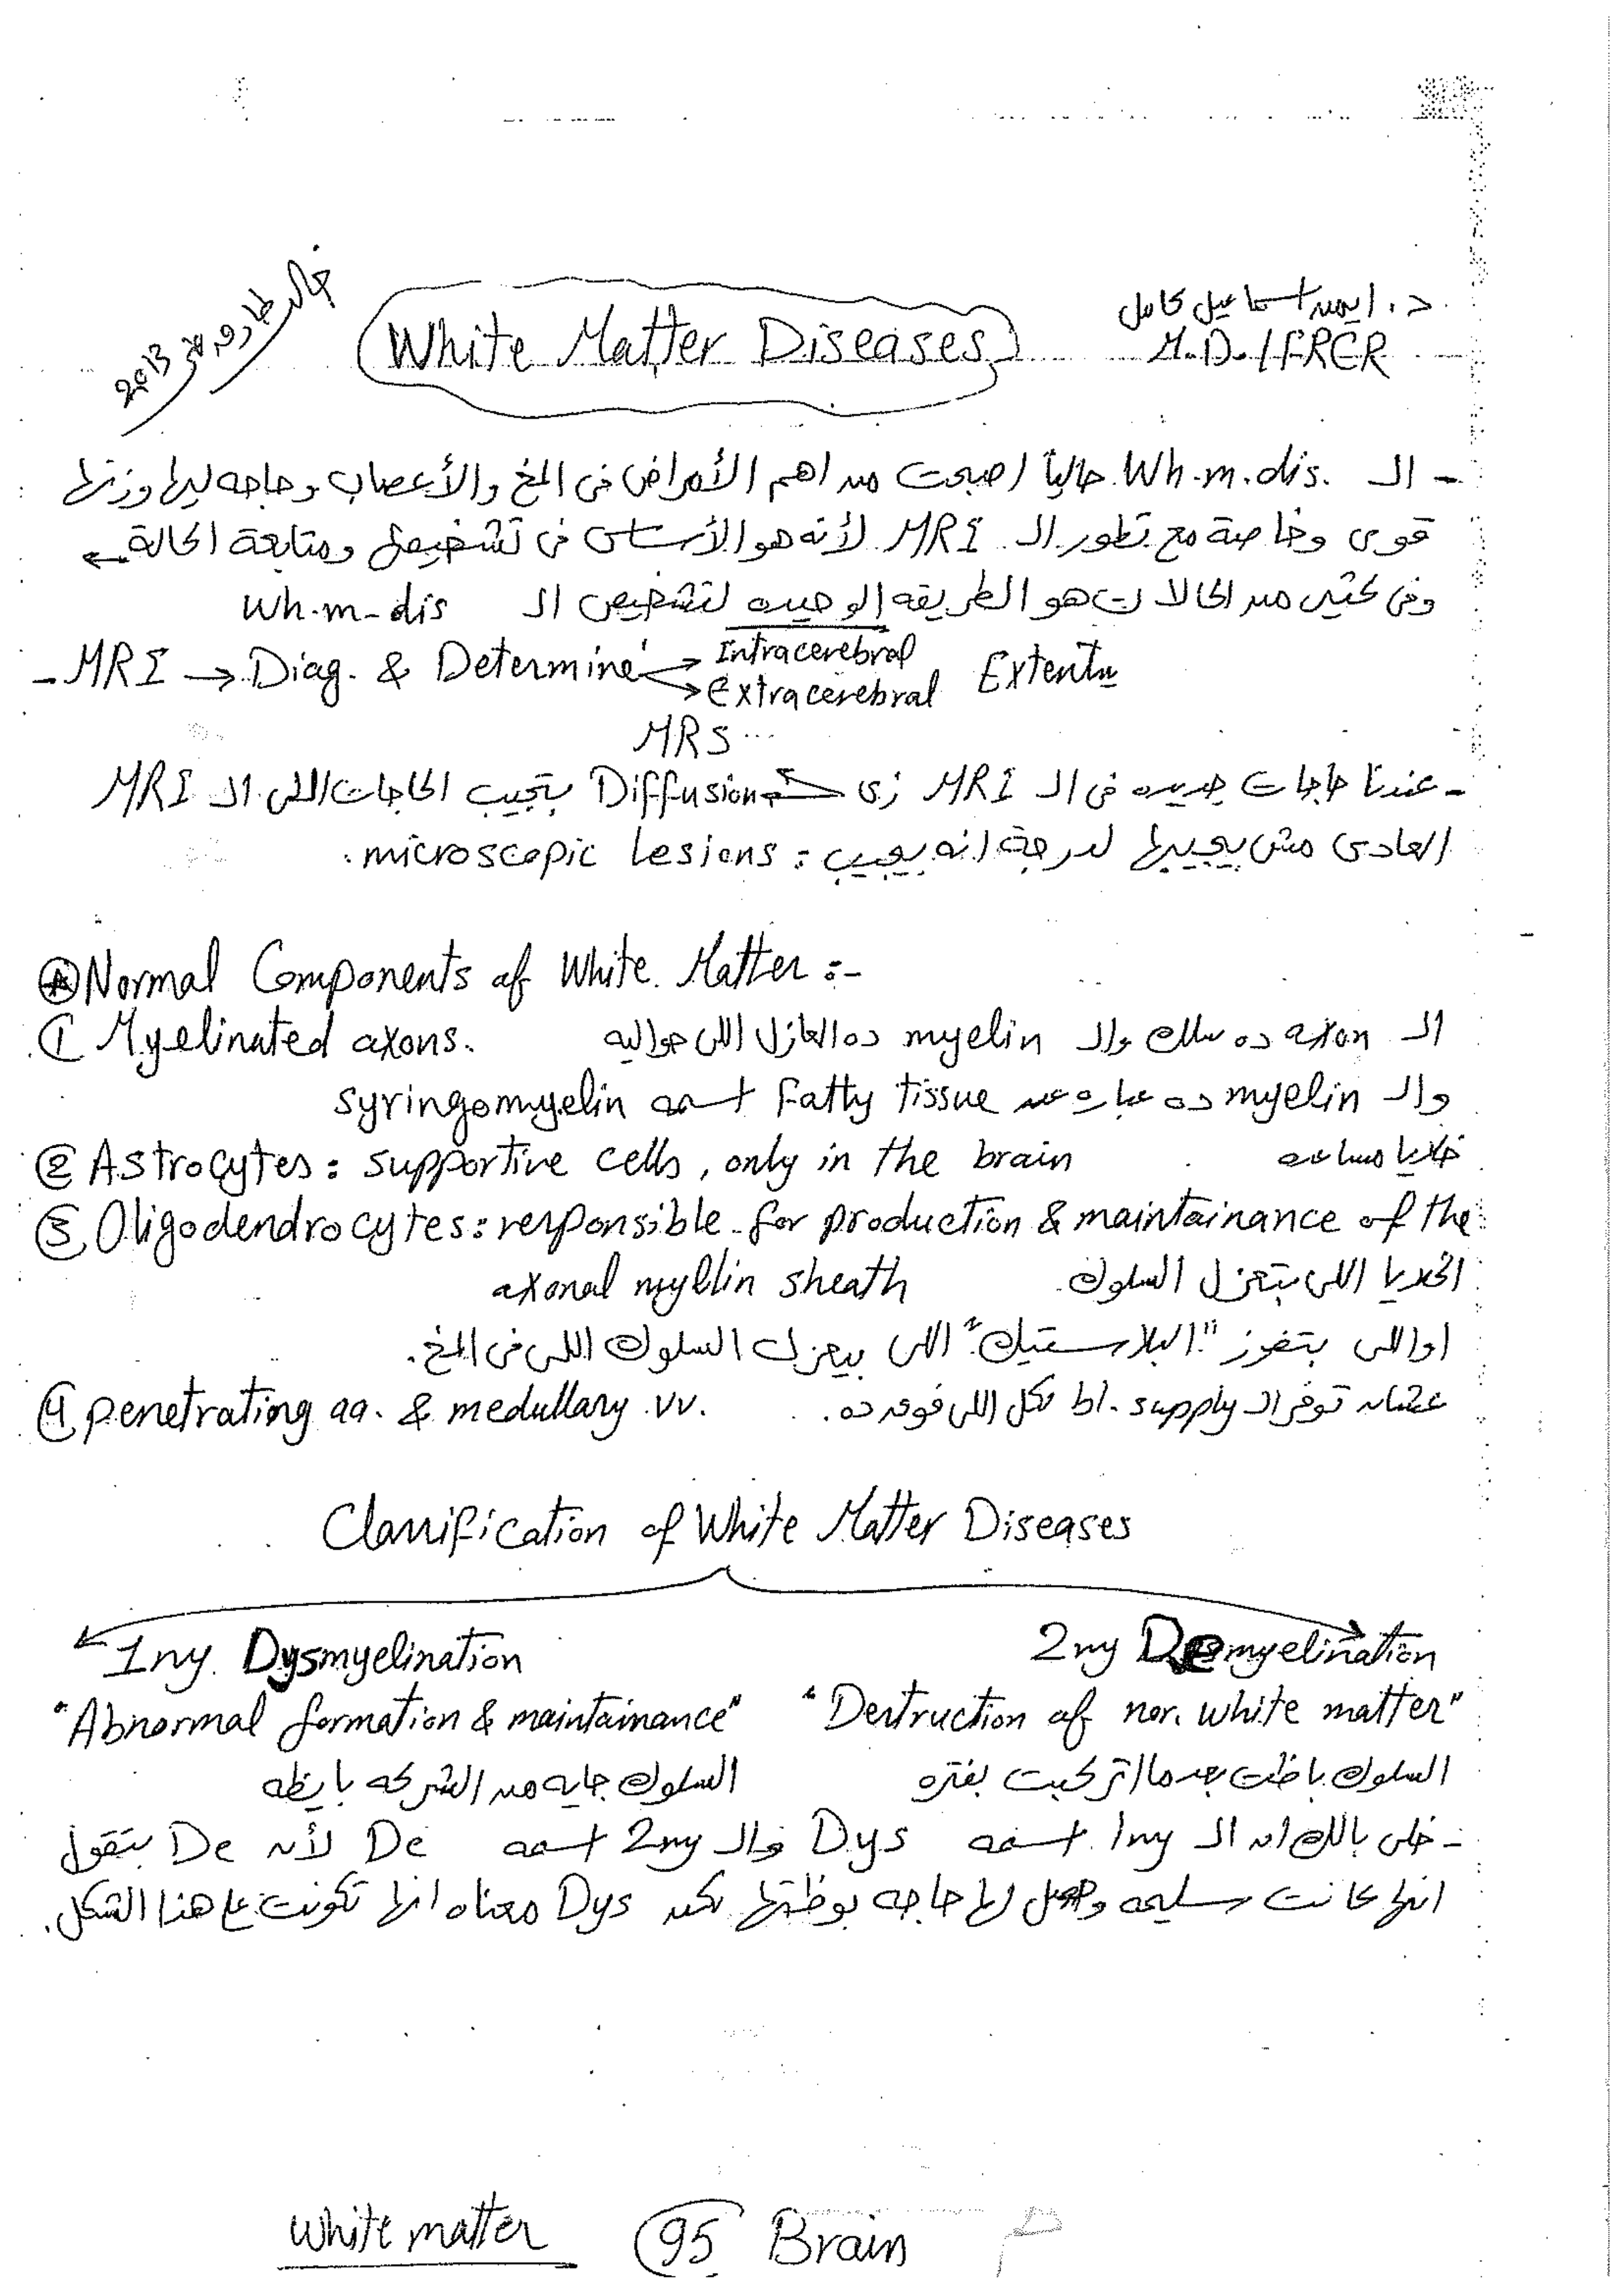 د. ايمن اسماعيل كامل
M.D./FRCR
White Matter Diseases
2013
- الـ Wh.m.dis. حالياً اصبحت من اهم الأمراض فى المخ والأعصاب وحاجه ليها وزنها
قوى وخاصة مع تطور الـ MRI لأنه هو الأساس فى تشخيصها ومتابعة الحالة ←
وفى كثير من الحالات هو الطريقه الوحيده لتشخيص الـ Wh.m-dis
- MRI → Diag. & Determine → Intracerebral → Extracerebral Extent
MRS
- عندنا حاجات جديده فى الـ MRI زى Diffusion بتجيب الحاجات اللى الـ MRI
العادى مش بيجيبها لدرجة انه بيجيب : microscopic lesions.
Normal Components of White Matter :-
① Myelinated axons. الـ axon ده سلك والـ myelin ده العازل اللى حواليه
والـ myelin ده عباره عن Fatty tissue اسمه syringomyelin
② Astrocytes : supportive cells, only in the brain خلايا مساعده
③ Oligodendrocytes : responsible for production & maintainance of the
axonal myelin sheath الخلايا اللى بتعزل السلوك
او اللى بتفرز "البلاستيك" اللى بيعزل السلوك اللى فى المخ.
④ penetrating aa. & medullary vv. عشان توفر الـ bl. supply لكل اللى فوق ده.
Classification of White Matter Diseases
1ny Dysmyelination
"Abnormal formation & maintainance"
السلوك جايه من الشركه بايظه
2ny Demyelination
"Destruction of nor. white matter"
السلوك باظت بعد ما اتركبت بفتره
- خلى بالك ان الـ 1ny اسمه Dys والـ 2ny اسمه De لأن De بتقول
انها كانت سليمه وحصل لها حاجه بوظتها لكن Dys معناه انها تكونت على هذا الشكل.
White matter 95 Brain